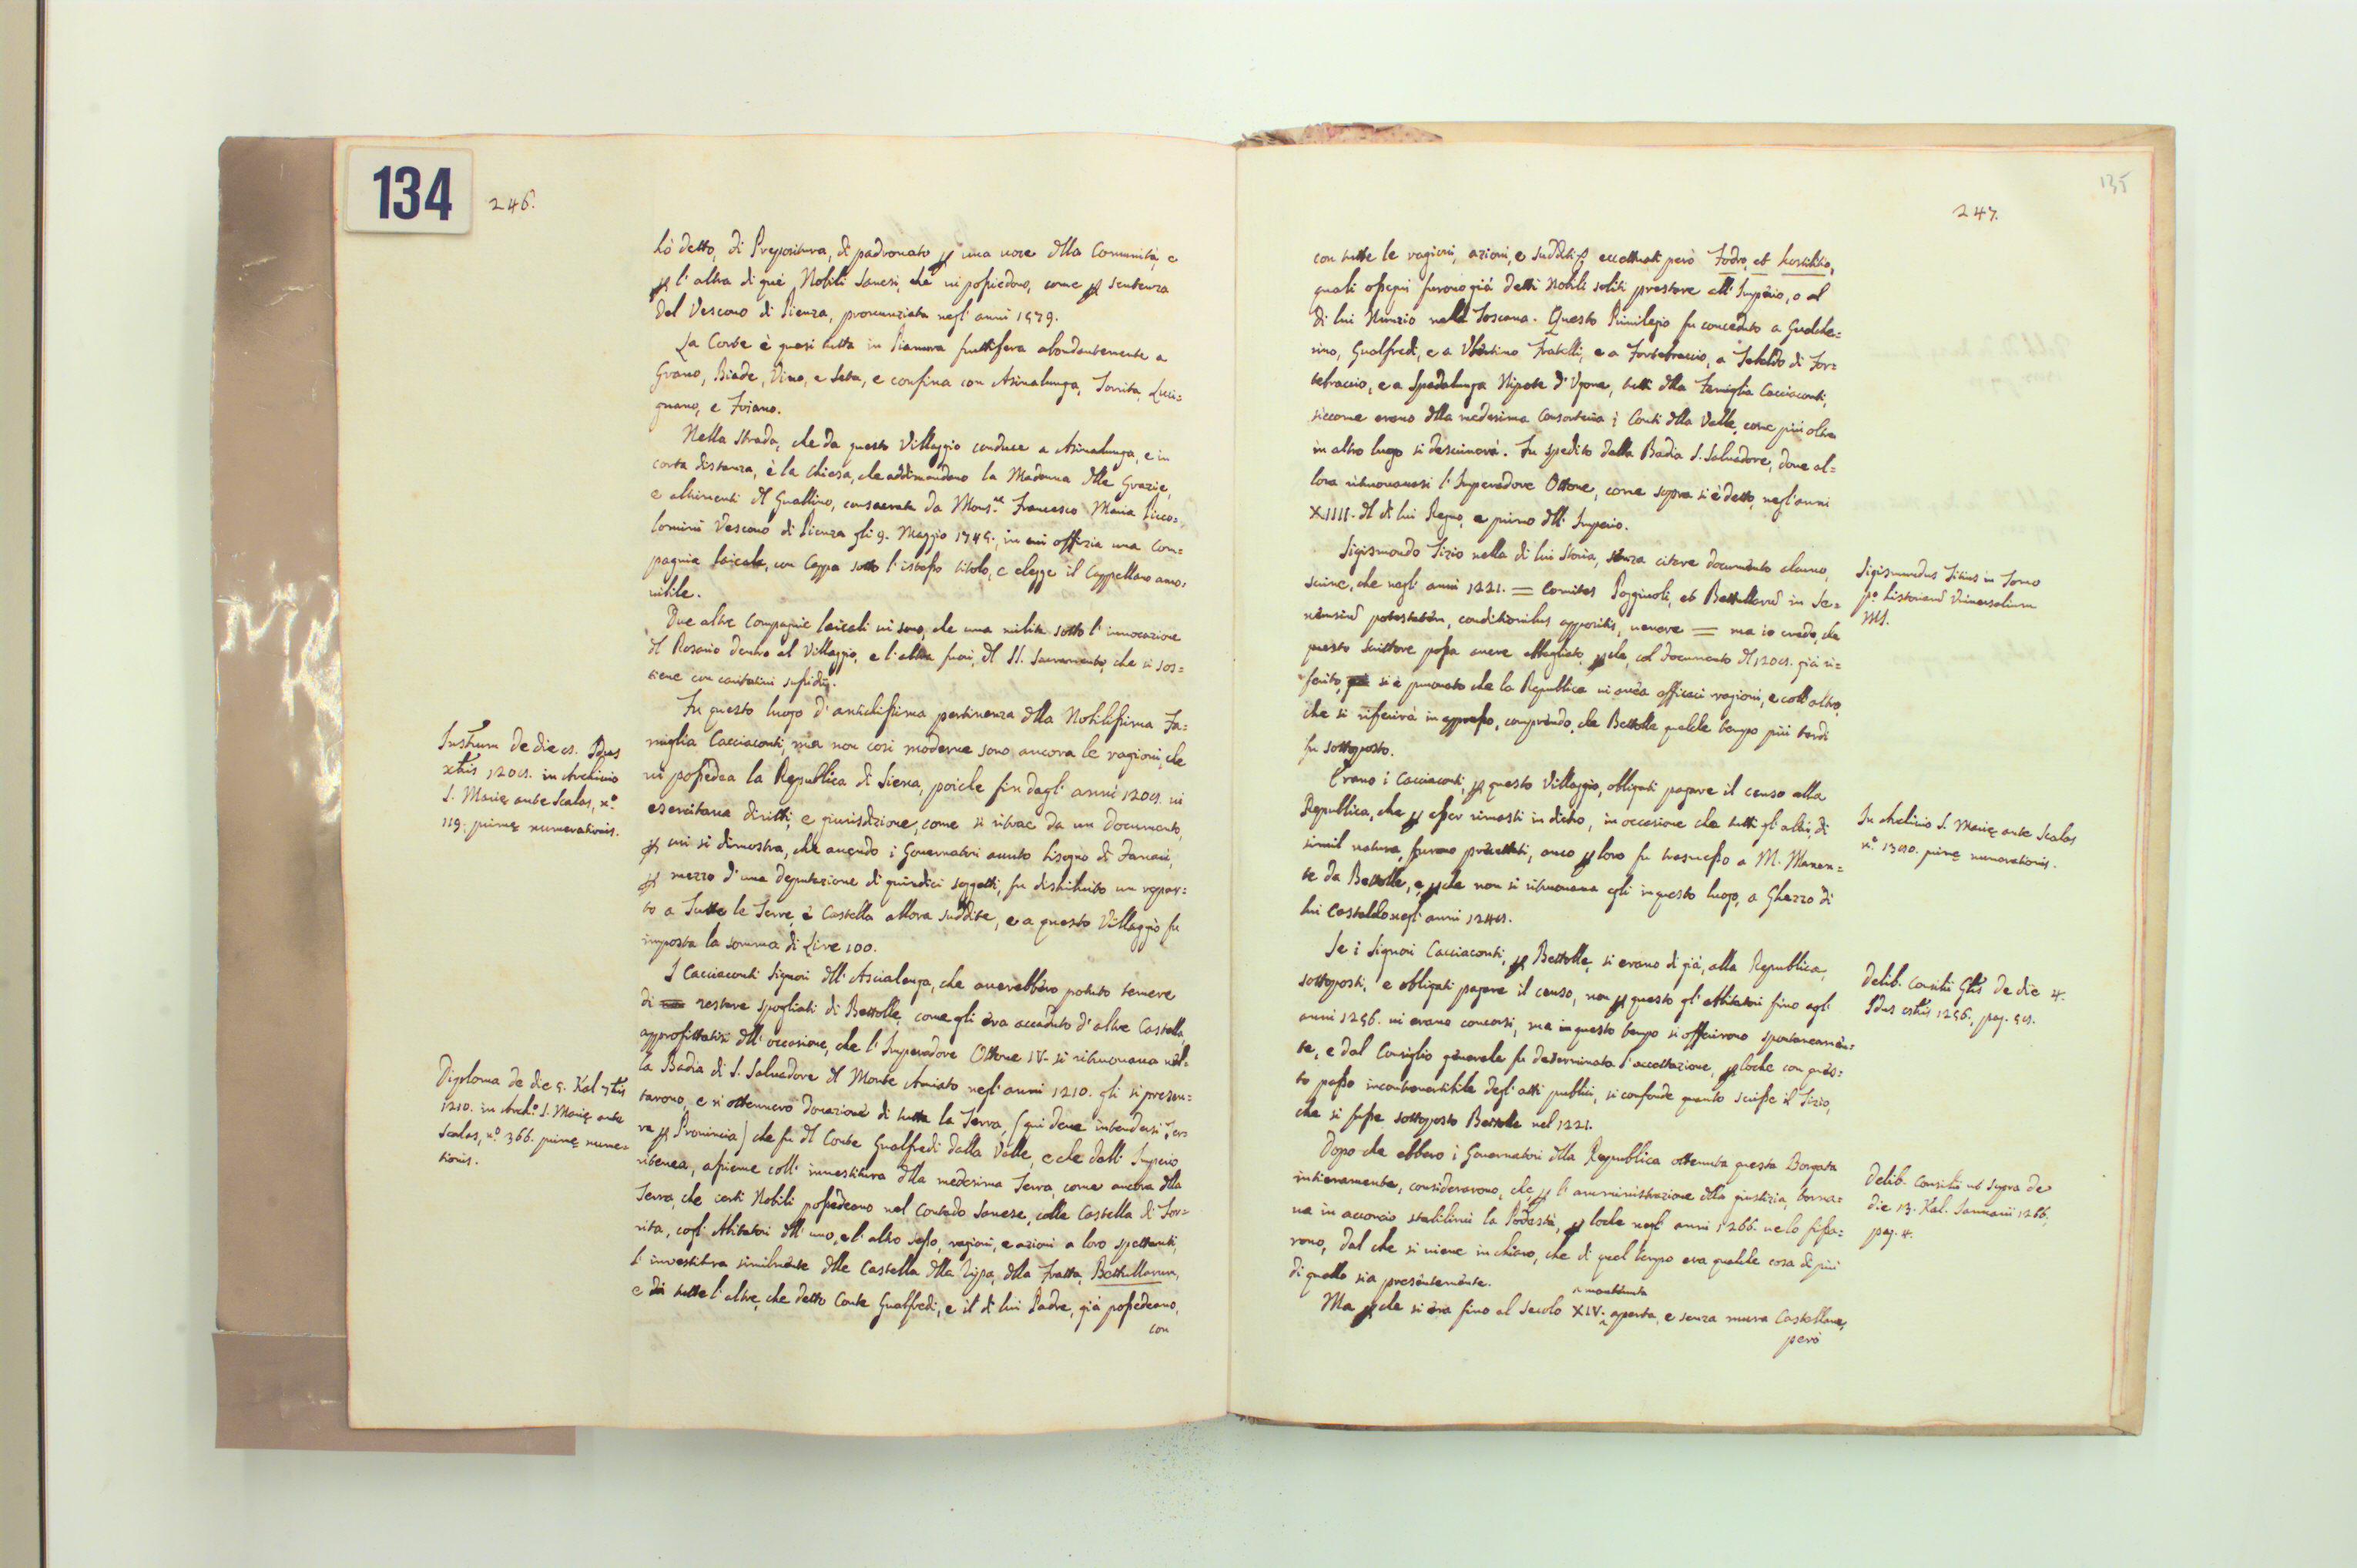 134
246.
hò detto, di Prepositura, di padronato p una voce dlla Comunità, e
p l'altra di que' Nobili Sanesi, che vi possiedono, come p sentenza
del Vescovo di Pienza, pronunziata negl'anni 1579.
La Corte è quasi tutta in Pianura fruttifera abondantemente a
Grano, Biade, Vino, e Seta, e confina con Asinalunga, Torrita, Luci=
gnano, e Fojano.
Nella Strada, che da questo Villaggio conduce a Asinalunga, e in
corta distanza, è la Chiesa, che addimandano la Madonna dlle Grazie,
e altrimenti dl Guallino, consacrata da Mons.re Francesco Maria Picco=
lomini Vescovo di Pienza gli 9. Maggio 1745., in cui offizia una Com=
pagnia laicale, con Cappa sotto l'istesso titolo, e elegge il Cappellano amo=
vibile.
Due altre Compagnie laicali vi sono, che una milita sotto l'invocazione
dl Rosario dentro al Villaggio, e l'altra fuori, dl SS. Sacramento, che si sos=
tiene con caritativi sussidj.
Fu questo luogo d'antichissima pertinenza dlla Nobilissima Fa=
miglia Cacciaconti, ma non così moderne sono ancora le ragioni, che
vi possedea la Republica di Siena, poiche fin dagl'anni 1205. vi
esercitava diritti, e giurisdizione, come si ritrae da un Documento,
p cui si dimostra, che avendo i Governatori avuto bisogno di Danari,
p mezzo d'una deputazione di quindici soggetti, fu distribuito un repar=
to a Tutte le Terre, e Castella allora suddite, e a questo Villaggio fu
imposta la somma di Lire 100.
I Cacciaconti Signori dll'Ascialenga, che averebbero potuto temere
di restare spogliati di Bettolle, come gli era accaduto d'altre Castella,
approfittatisi dll'occasione, che l'Imperadore Ottone IV. si ritrovava nel=
la Badia di S. Salvadore dl Monte Amiato negl'anni 1210. gli si presen=
tarono, e ne ottennero donazione di tutta la Terra, (qui deve intendersi Ter=
ra p Provincia) che fu dl Conte Gualfredi dalla Valle, e che dall'Imperio
ritenea, assieme coll'investitura dlla medesima Terra, come ancora dlla
Terra, che certi Nobili possedeano nel Contado Sanese, colle Castella di Tor=
rita, cogl'Abitatori dll'uno, e l'altro sesso, ragioni, e azioni a loro spettanti,
l'investitura similmente dlle Castella dlla Ripa, dlla Fratta, Bettullarum,
e di tutte l'altre, che detto Conte Gualfredi, e il di lui Padre, già possedeano,
con
Instrum de die 5. Idus
xbris 1205. in Archivio
S. Marię ante Scalas, n.o
119. primę numerationis.
Diploma de die 5. Kal 7bris
1210. in Arch.o S. Marię ante
Scalas, n.o 366. primę nume=
tionis.
135
247.
con tutte le ragioni, azioni, e sudditi, eccettuati però Fodro, et hostilitio,
quali ossequi furono già detti Nobili soliti prestare all'Imperio, o al
di lui Nunzio nella Toscana. Questo Privilegio fu conceduto a Gualche=
rino, Gualfredi, e a Ubertino Fratelli, e a Fortebraccio, a Tebaldo di For=
tebraccio, e a Spadalunga Nipote d'Ugone, tutti dlla Famiglia Cacciaconti,
siccome erano dlla medesima Consorteria i Conti dlla Valle, come più oltre
in altro luogo si descriverà. Fu spedito dalla Badia S. Salvadore, dove al=
lora ritrovavasi l'Imperadore Ottone, come sopra si è detto, negl'anni
XIIII. dl di lui Regno, e primo dll'Imperio.
Sigismondo Tizio nella di lui Storia, senza citare documento alcuno,
scrive, che negl'anni 1221. = Comites Poggiuoli, et Bettullarum in Se=
nensium potestatem, conditionibus appositis, venere = ma io credo, che
questo Scrittore possa avere sbagliato, pche, col Documento dl 1205. già ri=
ferito, si è provato che la Republica vi avea efficaci ragioni, e coll'altro,
che si riferirà in appresso, comprendo, che Bettolle qualche tempo più tardi
fu sottoposto.
Erano i Cacciaconti, p questo Villaggio, obligati pagare il censo alla
Republica, che p esser rimasti in dietro, in occasione che tutti gl'altri, di
simil natura, furono precettati, anco p loro fu trasmesso a M. Manen=
te da Bettolle, e pche non si ritrovava egli in questo luogo, a Ghezzo di
lui Castaldo negl'anni 1245.
Se i Signori Cacciaconti, p Bettolle, si erano di già, alla Republica,
sottoposti, e obligati pagare il censo, non p questo gl'Abitatori fino agl'
anni 1256. vi erano concorsi, ma in questo tempo si offerirono spontaneamen=
te, e dal Consiglio generale fu determinata l'accettazione, ploche con ques=
to passo incontrovertibile degl'atti publici, si confonde quanto scrisse il Tizio,
che si fusse sottoposto Bettolle nel 1221.
Dopo che ebbero i Governatori dlla Republica ottenuta questa Borgata
intieramente, considerarono, che p l'amministrazione dlla giustizia, torna=
va in acconcio stabilirvi la Podestà, ploche negl'anni 1266. ve lo fissa=
rono, dal che si viene in chiaro, che di quel tempo era qualche cosa di più
di quello sia presentemente.
Ma pche si era fino al secolo XIV. mantenuta aperta, e senza mura Castellane,
però
Sigismundus Titius in Tomo
p.o historiarum Universalium
MS.
In Archivio S. Marię ante Scalas
n.o 1350. primę numerationis.
Delib. Consilii Glis de die 4.
Idus 1256., pag. 55.
Delib. Consilii ut supra de
die 13. Kal. Januarii 1266.
pag. 4.